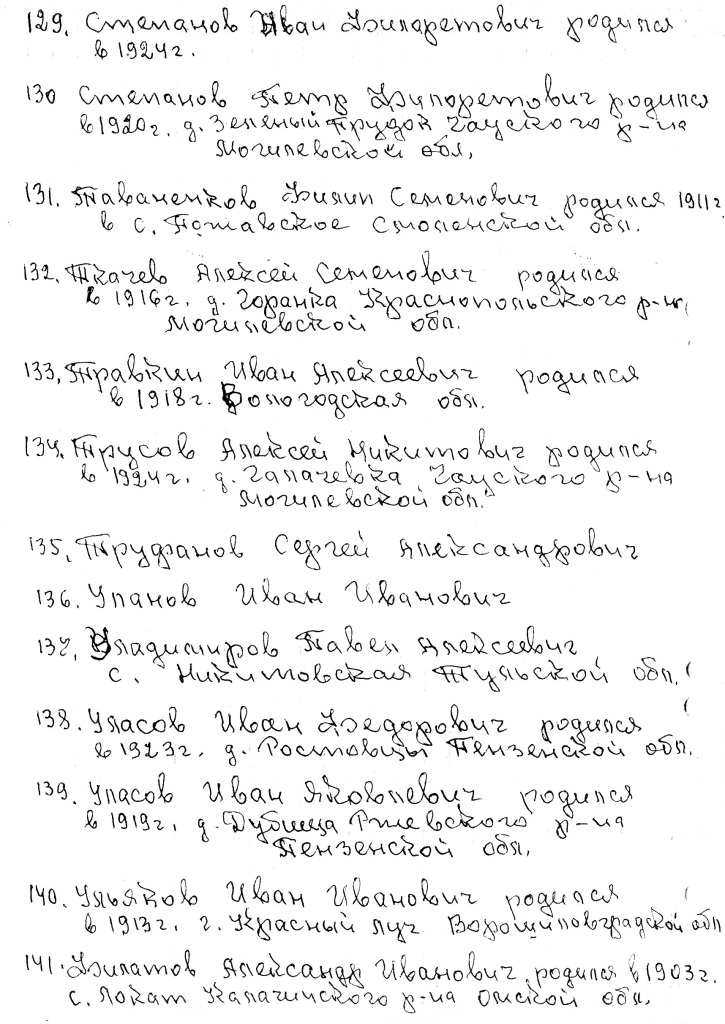 129. Степанов Иван Филаретович родился
в 1924г.
130 Степанов Петр Филаретович родился
в 1920г. д. Зеленый Прудок Чаусского р-на
Могилевской обл.
131. Таваненков Филип Семенович родился 1911г.
в с. Потавское Смоленской обл.
132. Ткачев Алексей Семенович родился
в 1916г. д. Горанка Краснопольского р-на
Могилевской обл.
133. Травкин Иван Алексеевич родился
в 1918г. Вологодская обл.
134. Трусов Алексей Никитович родился
в 1924г. д. Галачевка Чауского р-на
Могилевской обл.
135. Труфанов Сергей Александрович
136. Уланов Иван Иванович
137. Владимиров Павел Алексеевич
с. Никитовская Тульской обл.
138. Уласов Иван Федорович родился
в 1923г. д. Ростовцы Пензенской обл.
139. Уласов Иван Яковлевич родился
в 1919г. д. Дубница Ржевского р-на
Пензенской обл.
140. Ульяков Иван Иванович родился
в 1913г. г. Красный Луч Ворошиловградской обл
141. Филатов Александр Иванович родился в 1903г.
с. Локат Калачинского р-на Омской обл.